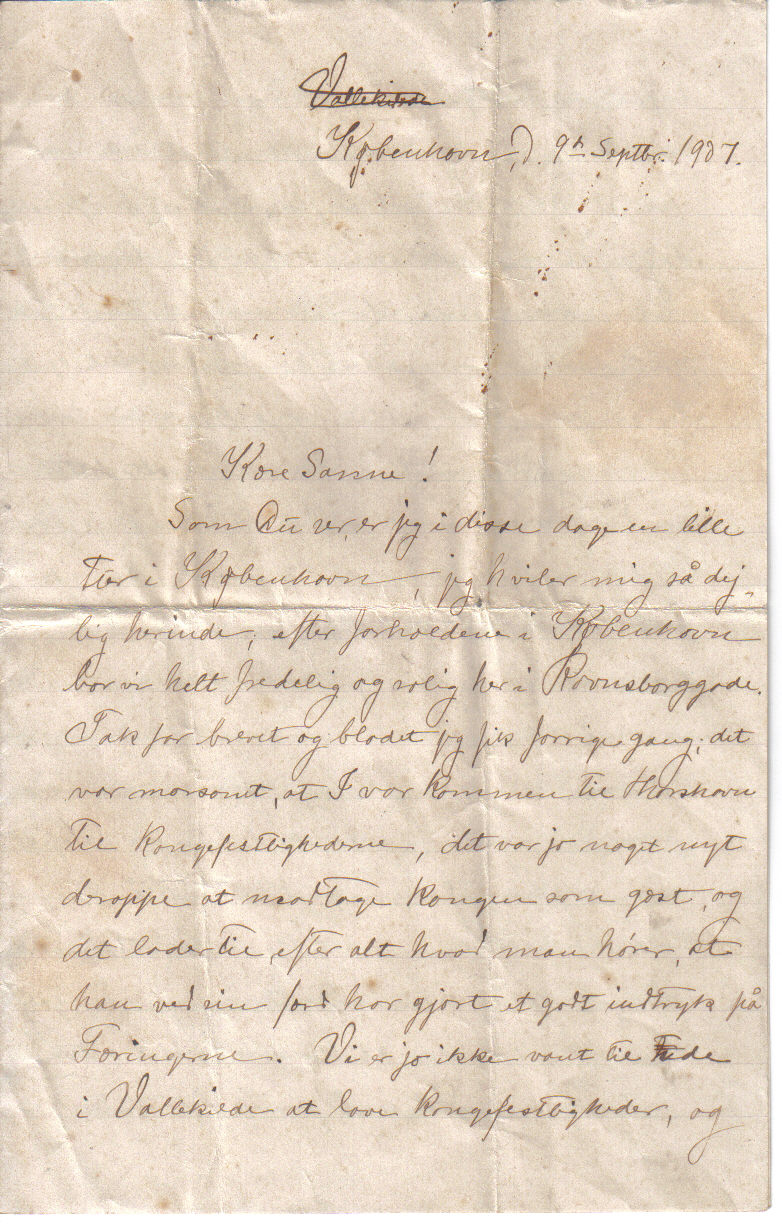 Vallekilde
København, d. 9n Septbr. 1907.
Kære Sanne!
Som Du ser, er jeg i disse dage en lille
tur i København, jeg hviler mig så dej-
lig herinde; efter forholdene i København
bor vi helt fredelig og rolig her i Ravnsborggade.
Tak for brevet og bladet jeg fik forrige gang; det
var morsomt, at I var kommen til Thorshavn
til kongefestlighederne, det var jo noget nyt
deroppe at modtage kongen som gæst, og
det lader til, efter alt hvad man hører, at
han ved sin færd har gjort et godt indtryk på
Færingerne. Vi er jo ikke vant til
i Vallekilde at lave kongefestligheder, og